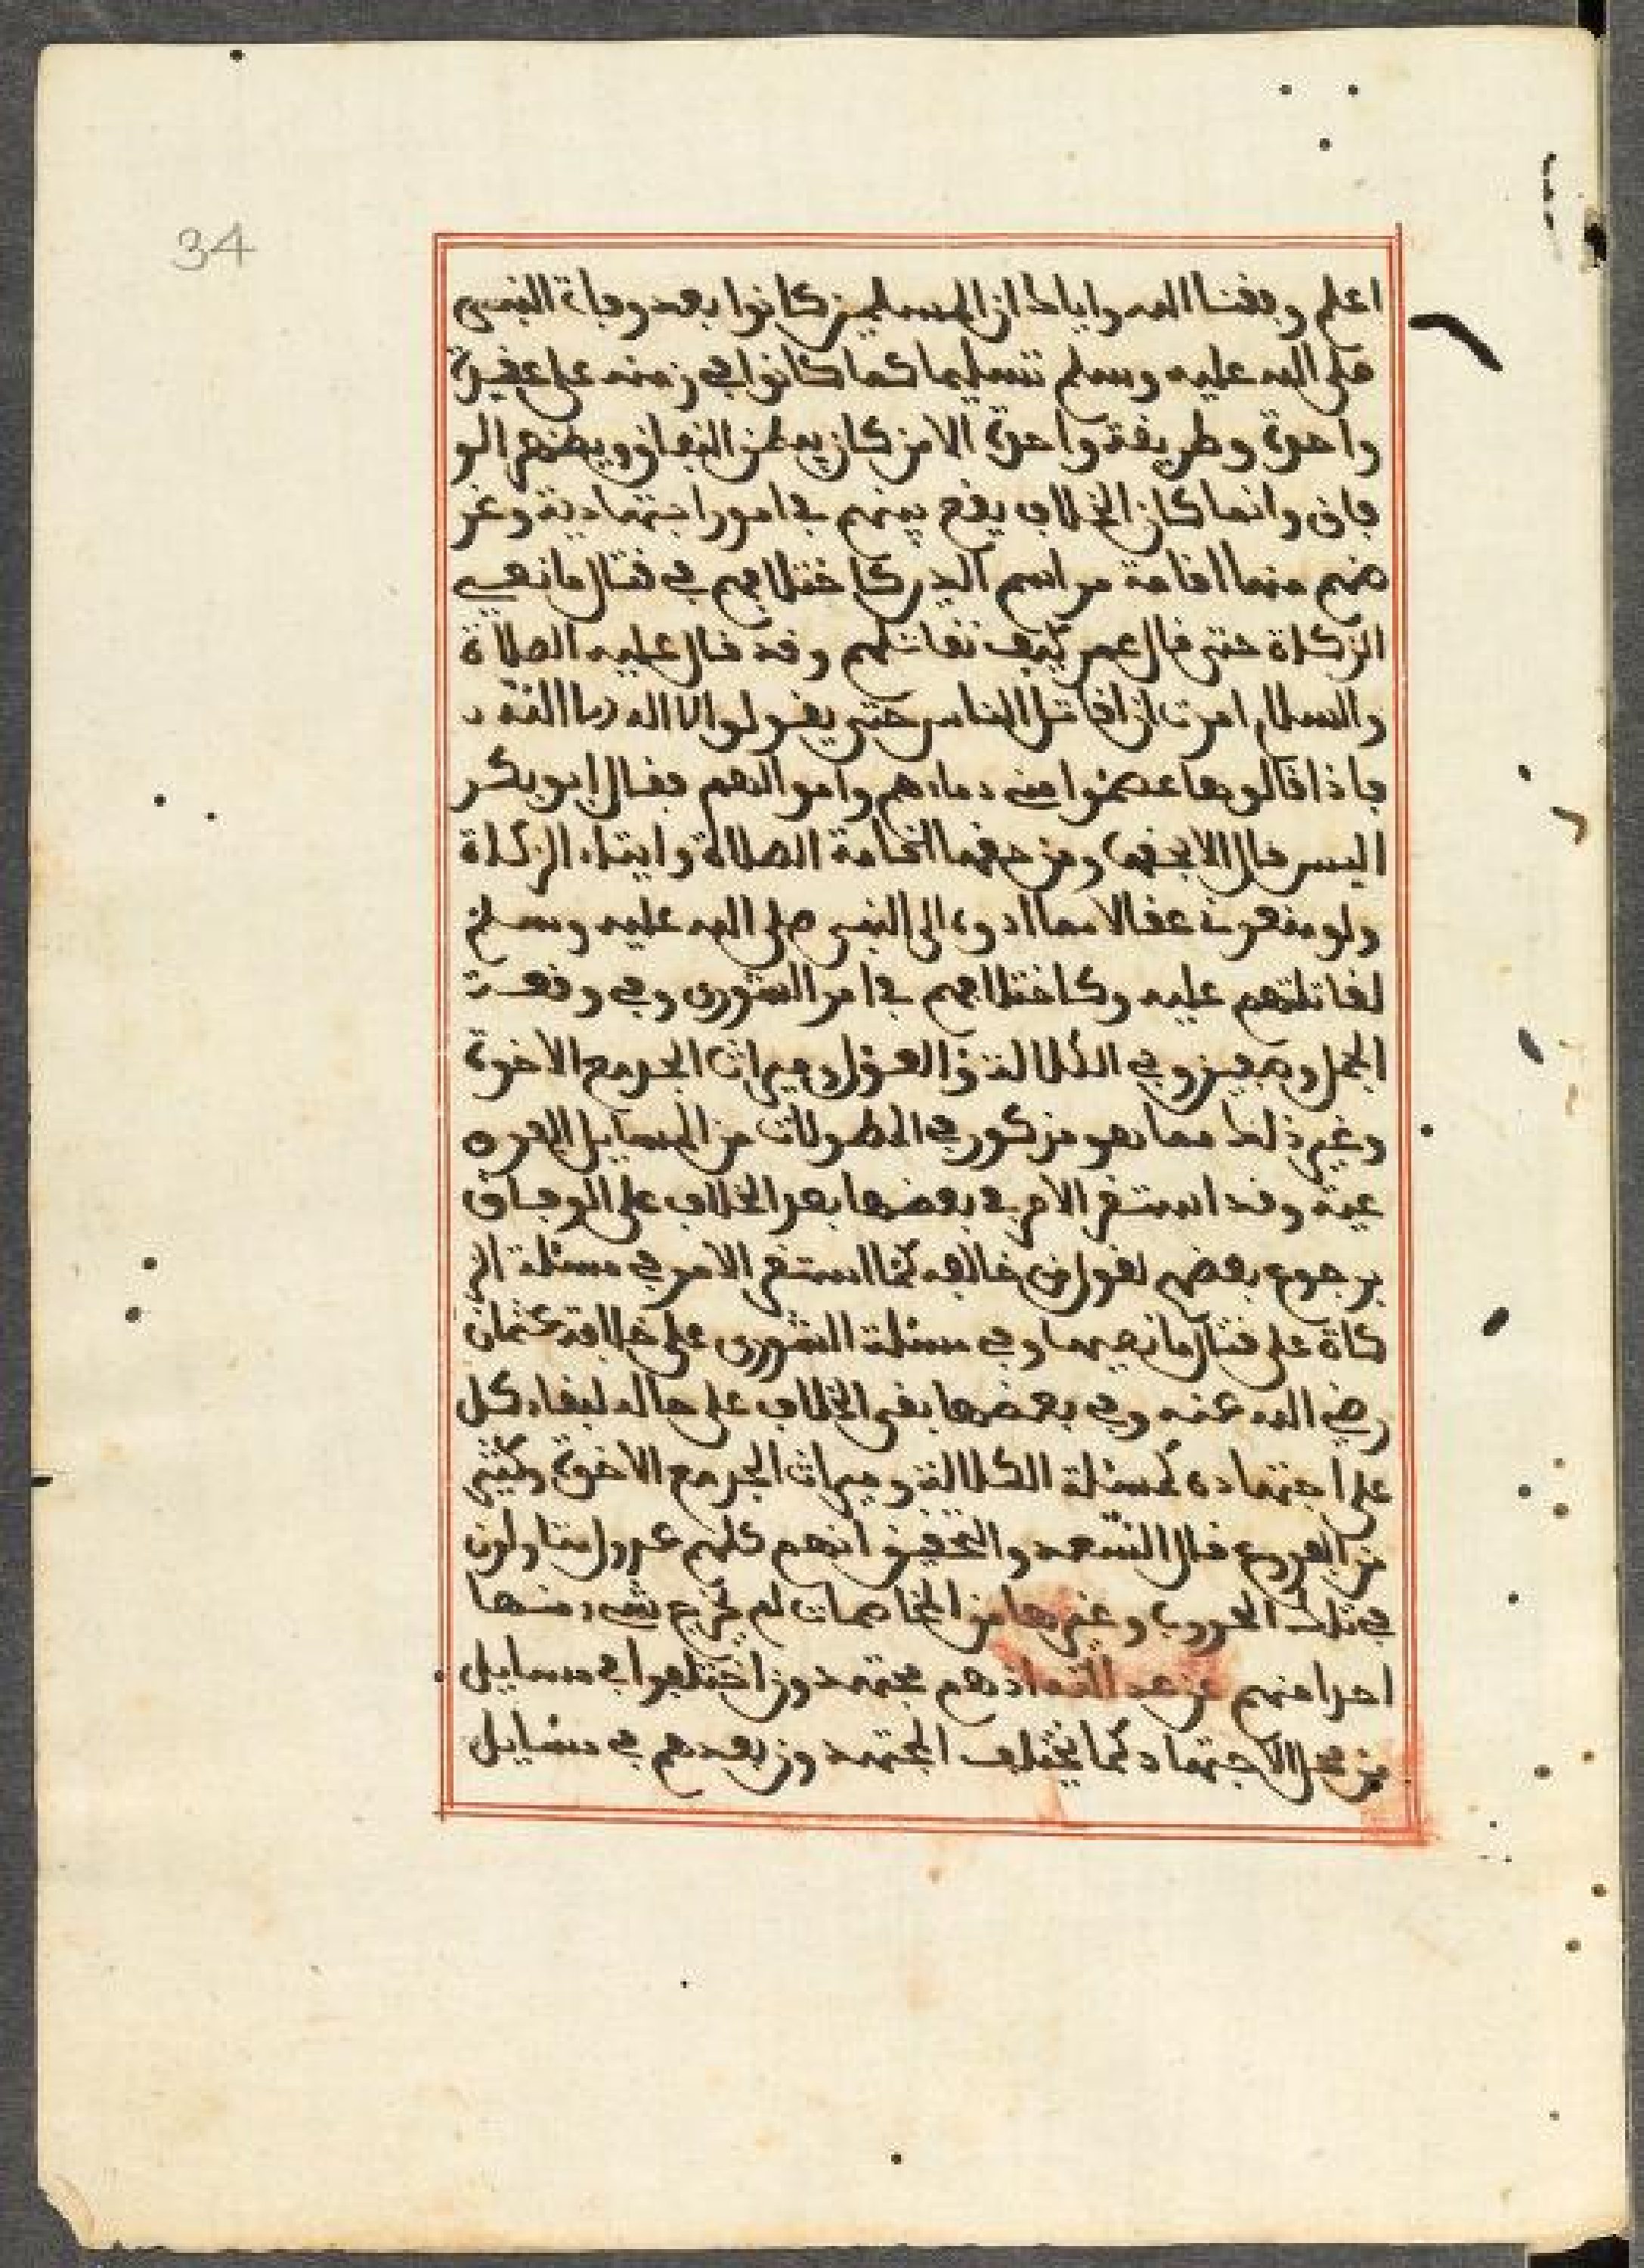 34
اعلم وفقنا الله واياك ان المسلمين كانوا بعد وفاة النبي
صلى الله عليه وسلم تسليما كما كانوا في زمنه على عقيدة
واحدة وطريقة واحدة الا من كان يبطن النفاق ويظهر الو
فاق وانما كان الخلاف يقع بينهم في امور اجتهادية وغر
ضهم منها اقامة مراسم الدين كاختلافهم في قتال مانعي
الزكاة حتى قال عمر كيف نقاتلهم وقد قال عليه الصلاة
والسلام امرت ان اقاتل الناس حتى يقولوا لا اله الا الله
فاذا قالوها عصموا مني دماءهم واموالهم فقال ابو بكر
اليس قال الا بحقها ومن حقها اقامة الصلاة وايتاء الزكاة
ولو منعوني عقالا مما ادوه الى النبي صلى الله عليه وسلم
لقاتلتهم عليه وكاختلافهم في امر الشورى وفي وقعة
الجمل وصفين وفي الكلالة والعول وميراث الجد مع الاخوة
وغير ذلك مما هو مذكور في المطولات من المسايل الفرو
عية وقد استقر الامر في بعضها بعد الخلاف على الوفاق
برجوع بعضهم لقول من خالفه كما استقر الامر في مسئلة الز
كاة على قتال مانعيها وفي مسئلة الشورى على خلافة عثمان
رضي الله عنه وفي بعضها بقي الخلاف على حاله لبقاء كل
على اجتهاده كمسئلة الكلالة وميراث الجد مع الاخوة وكثير
من الفروع قال السعد والتحقيق انهم كلهم عدول متاولون
في تلك الحروب وغيرها من المخاصمات لم يخرج شيء منها
احدا منهم عن عدالته اذ هم مجتهدون اختلفوا في مسايل
من محل الاجتهاد كما يختلف المجتهدون بعدهم في مسايل